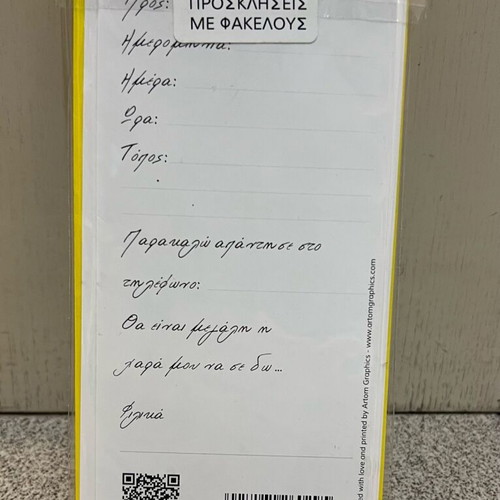 ΠΡΟΣΚΛΗΣΕΙΣ
ΜΕ ΦΑΚΕΛΟΥΣ
Προς:
Ημερομηνία:
Ημέρα:
Ώρα:
Τόπος:
Παρακαλώ απάντησε στο
τηλέφωνο:
Θα είναι μεγάλη η
χαρά μου να σε δω...
Φιλικά
ed with love and printed by Artom Graphics - www.artomgraphics.com